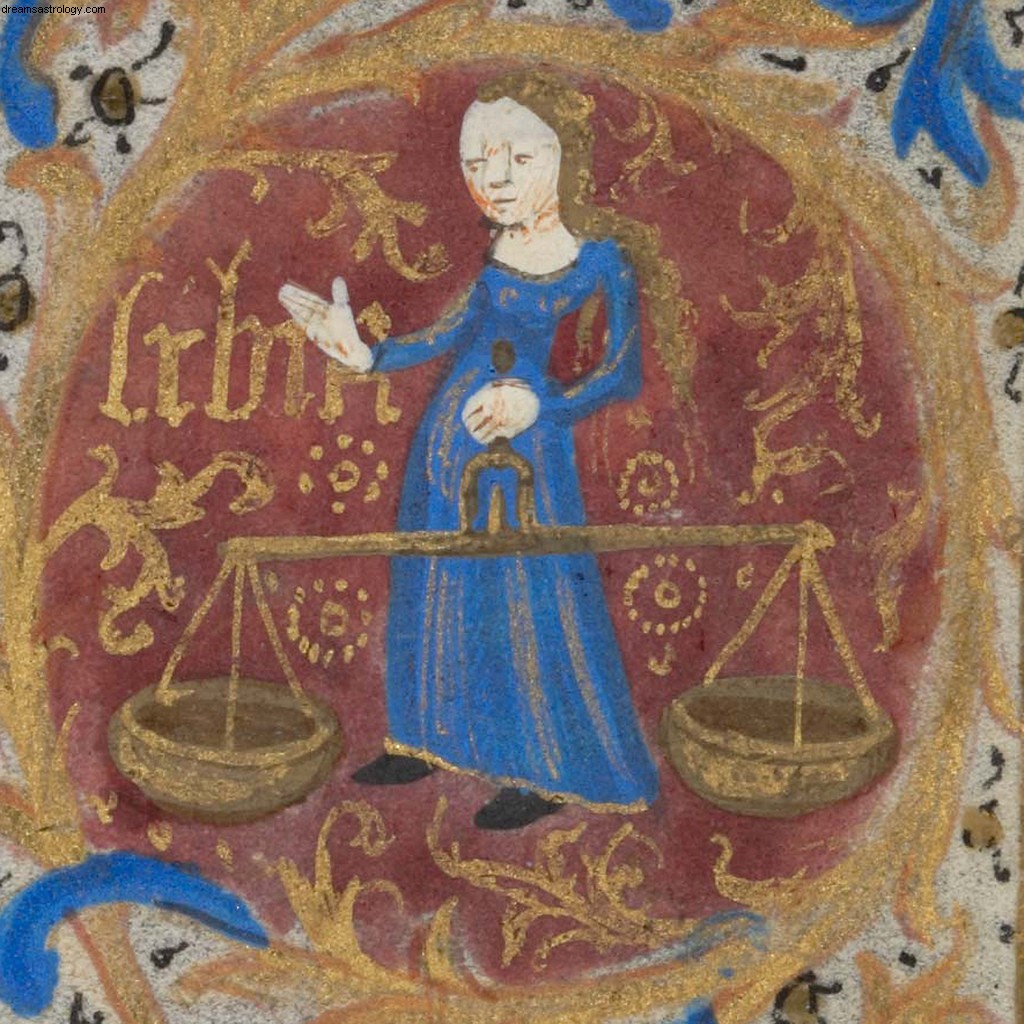 dreamsastrology.com
libra